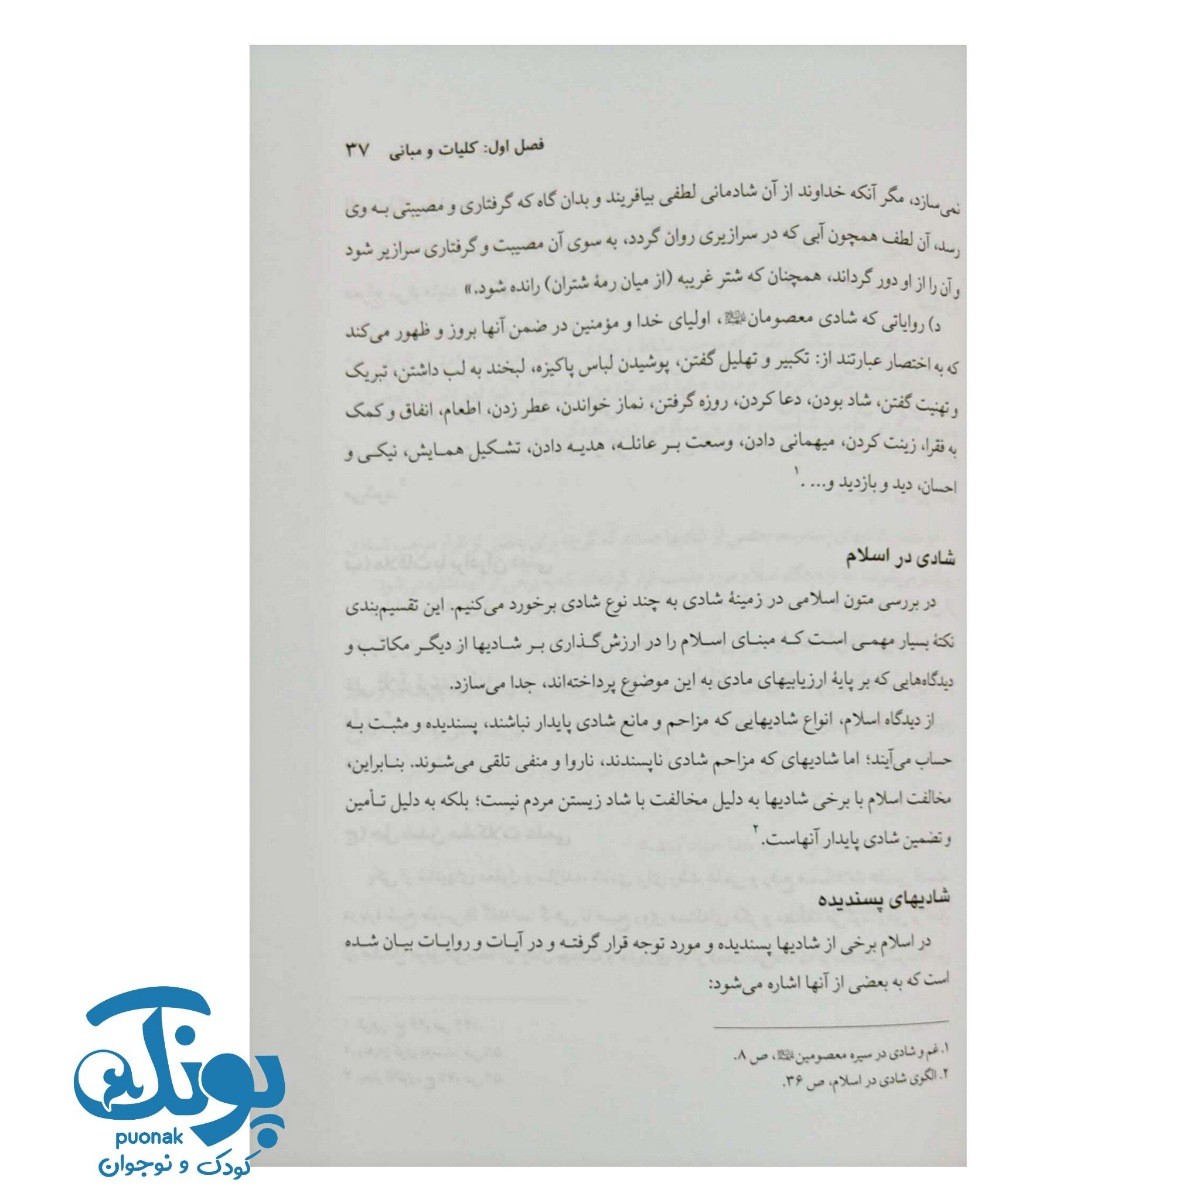 فصل اول: کلیات و مبانی ۳۷
نمی‌سازد، مگر آنکه خداوند از آن شادمانی لطفی بیافریند و بدان گاه که گرفتاری و مصیبتی به وی
رسد، آن لطف همچون آبی که در سرازیری روان گردد، به سوی آن مصیبت و گرفتاری سرازیر شود
و آن را از او دور گرداند، همچنان که شتر غریبه (از میان رمهٔ شتران) رانده شود.»
د) روایاتی که شادی معصومان، اولیای خدا و مؤمنین در ضمن آنها بروز و ظهور می‌کند
که به اختصار عبارتند از: تکبیر و تهلیل گفتن، پوشیدن لباس پاکیزه، لبخند به لب داشتن، تبریک
و تهنیت گفتن، شاد بودن، دعا کردن، روزه گرفتن، نماز خواندن، عطر زدن، اطعام، انفاق و کمک
به فقرا، زینت کردن، میهمانی دادن، وسعت بر عائله، هدیه دادن، تشکیل همایش، نیکی و
احسان، دید و بازدید و... .۱
شادی در اسلام
در بررسی متون اسلامی در زمینهٔ شادی به چند نوع شادی برخورد می‌کنیم. این تقسیم‌بندی
نکتهٔ بسیار مهمی است که مبنای اسلام را در ارزش‌گذاری بر شادیها از دیگر مکاتب و
دیدگاه‌هایی که بر پایهٔ ارزیابیهای مادی به این موضوع پرداخته‌اند، جدا می‌سازد.
از دیدگاه اسلام، انواع شادیهایی که مزاحم و مانع شادی پایدار نباشند، پسندیده و مثبت به
حساب می‌آیند؛ اما شادیهای که مزاحم شادی ناپسندند، ناروا و منفی تلقی می‌شوند. بنابراین،
مخالفت اسلام با برخی شادیها به دلیل مخالفت با شاد زیستن مردم نیست؛ بلکه به دلیل تأمین
و تضمین شادی پایدار آنهاست.۲
شادیهای پسندیده
در اسلام برخی از شادیها پسندیده و مورد توجه قرار گرفته و در آیات و روایات بیان شده
است که به بعضی از آنها اشاره می‌شود:
۱. غم و شادی در سیره معصومین، ص ۸.
۲. الگوی شادی در اسلام، ص ۳۶.
پونک
puonak
کودک و نوجوان